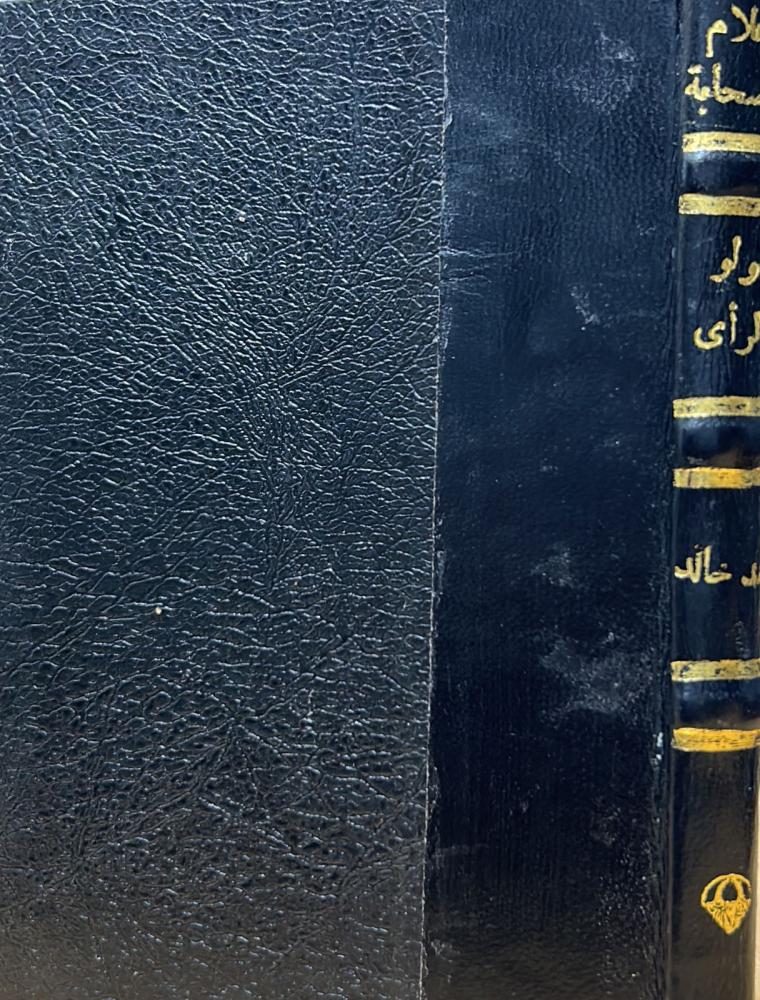 علام
صحابة
ولو
لرأى
مد خالد